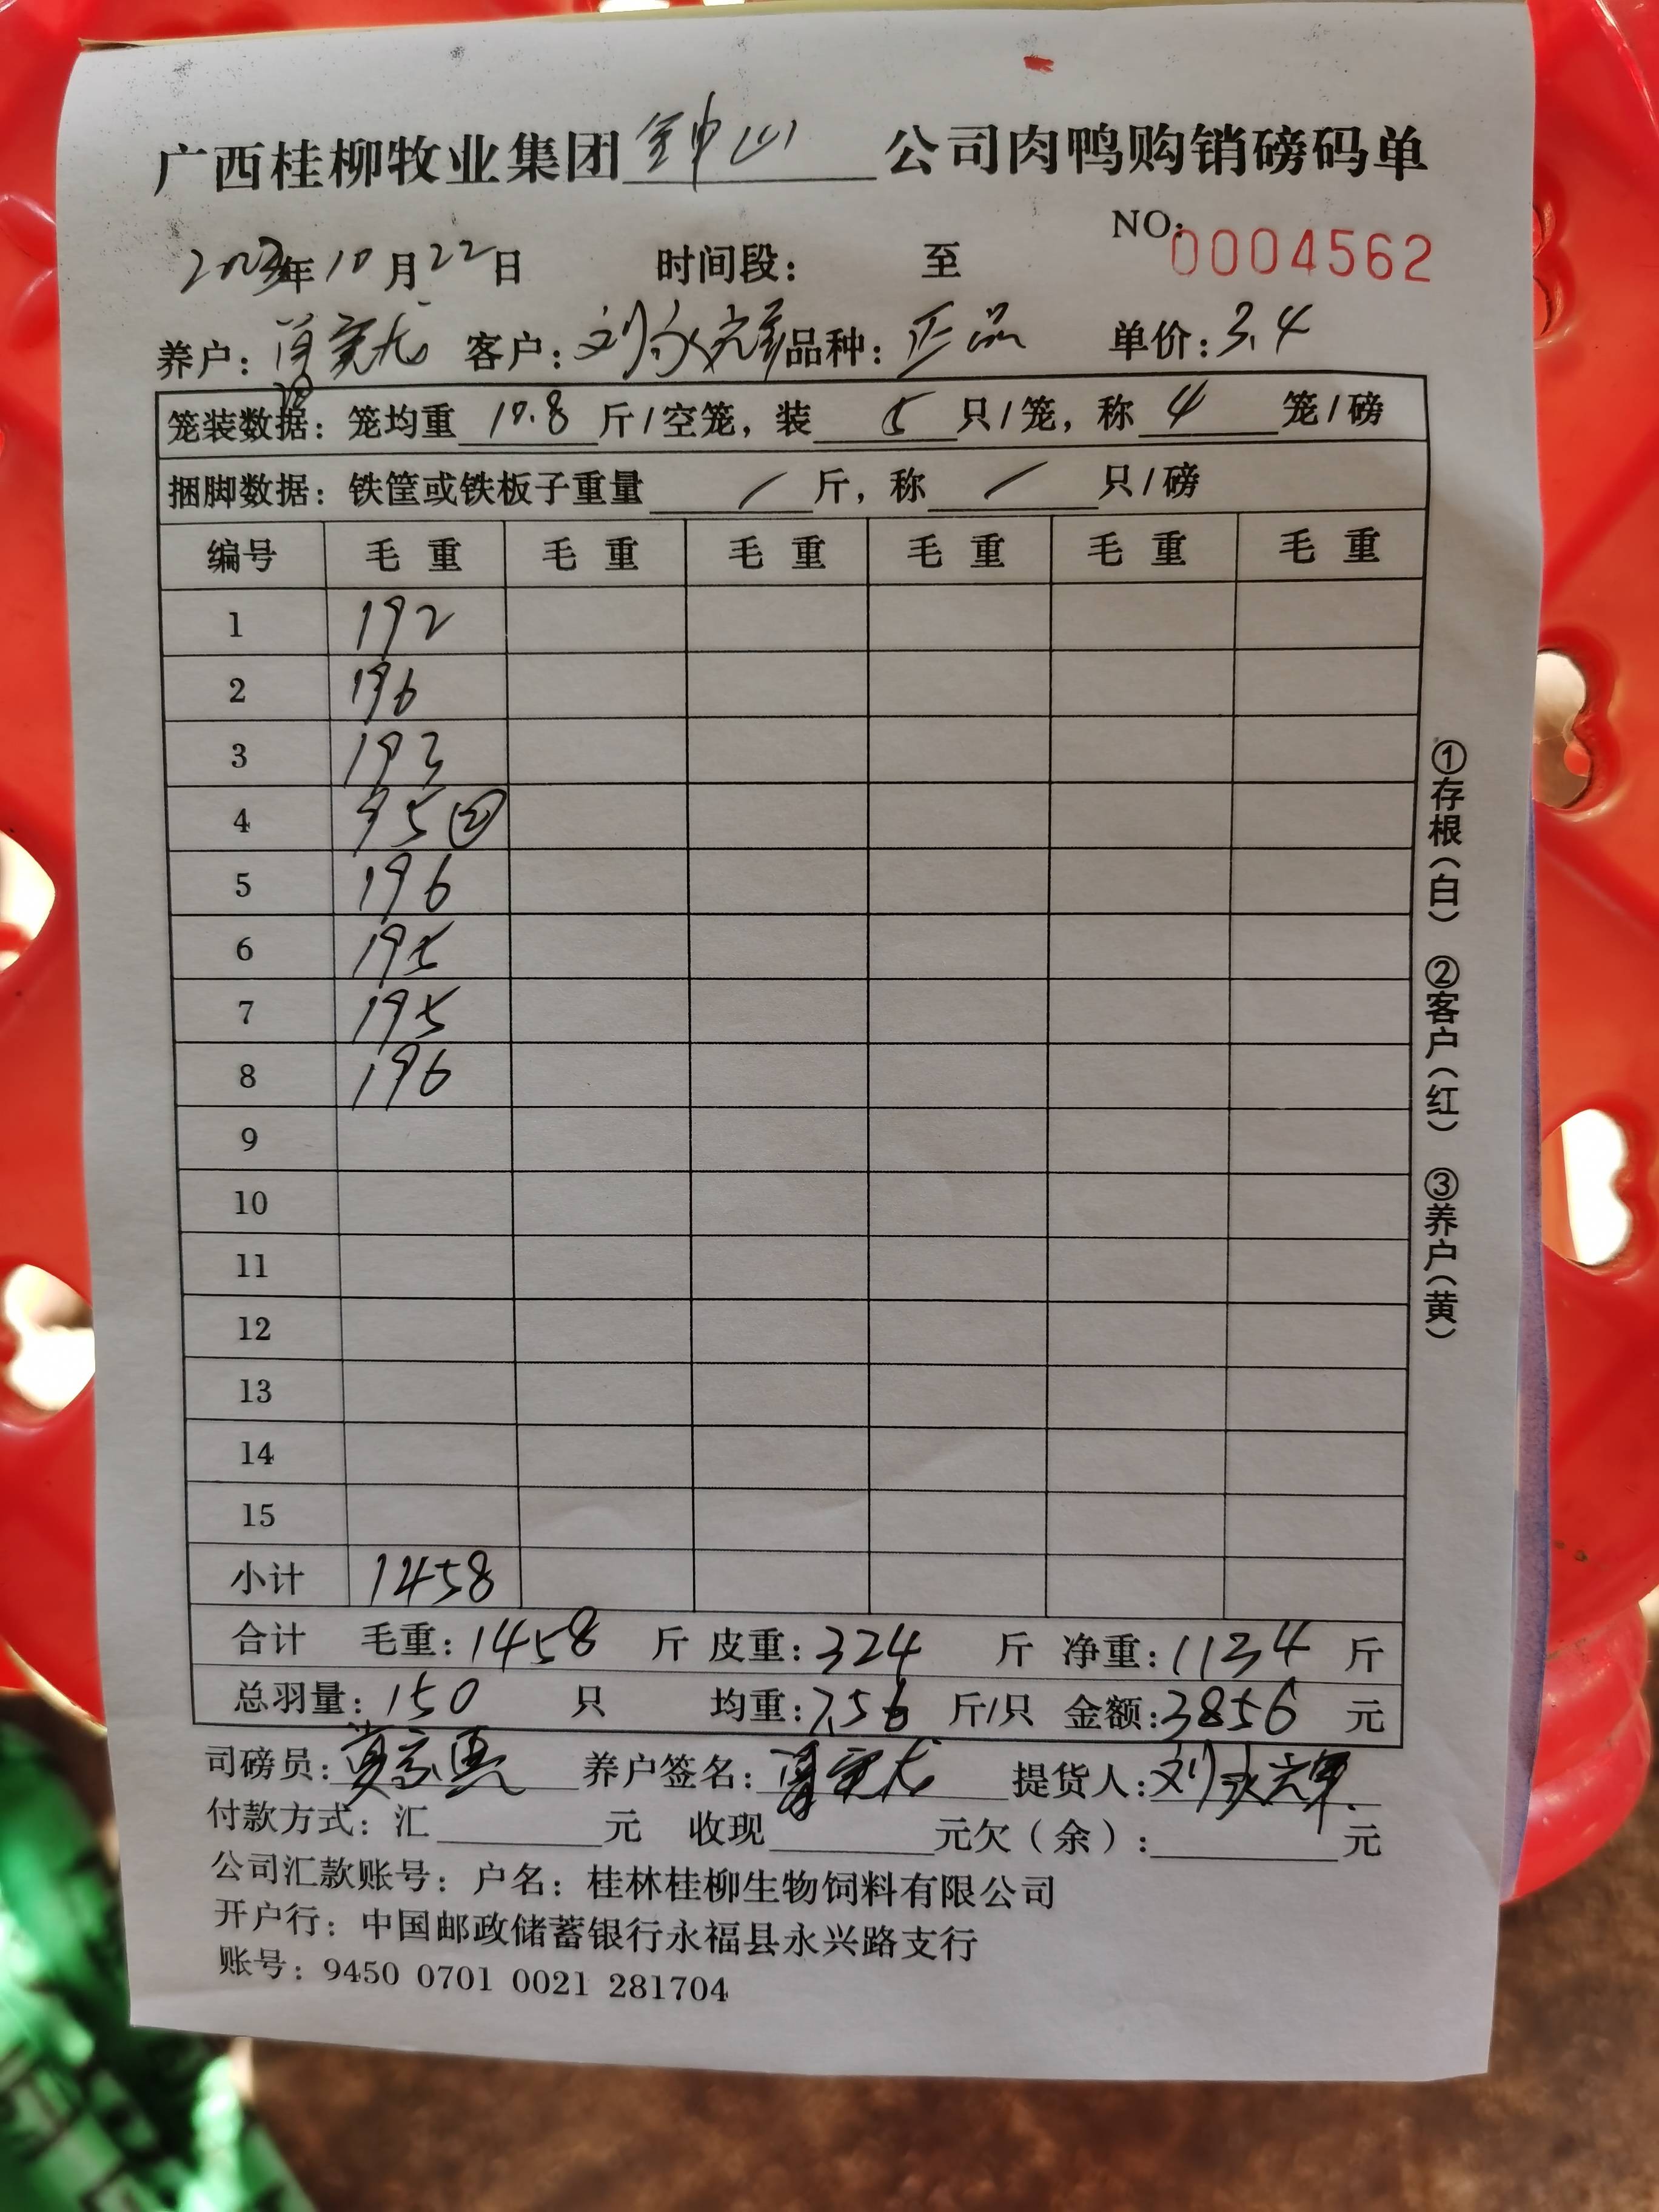 广西桂柳牧业集团钟山公司肉鸭购销磅码单
NO:0004562
2023年10月22日 时间段: 至
养户: 客户:刘永辉 品种:正品 单价:3.4
笼装数据:笼均重10.8斤/空笼,装5只/笼,称4笼/磅
捆脚数据:铁筐或铁板子重量/斤,称/只/磅
编号 毛重 毛重 毛重 毛重 毛重 毛重
1 192
2 196
3 193
4 95②
5 196
6 195
7 195
8 196
9
10
11
12
13
14
15
小计 1458
合计 毛重:1458斤 皮重:324斤 净重:1134斤
总羽量:150只 均重:7.56斤/只 金额:3856元
司磅员: 养户签名: 提货人:刘永辉
付款方式:汇 元 收现 元欠(余): 元
公司汇款账号:户名:桂林桂柳生物饲料有限公司
开户行:中国邮政储蓄银行永福县永兴路支行
账号:9450 0701 0021 281704
①存根(白) ②客户(红) ③养户(黄)